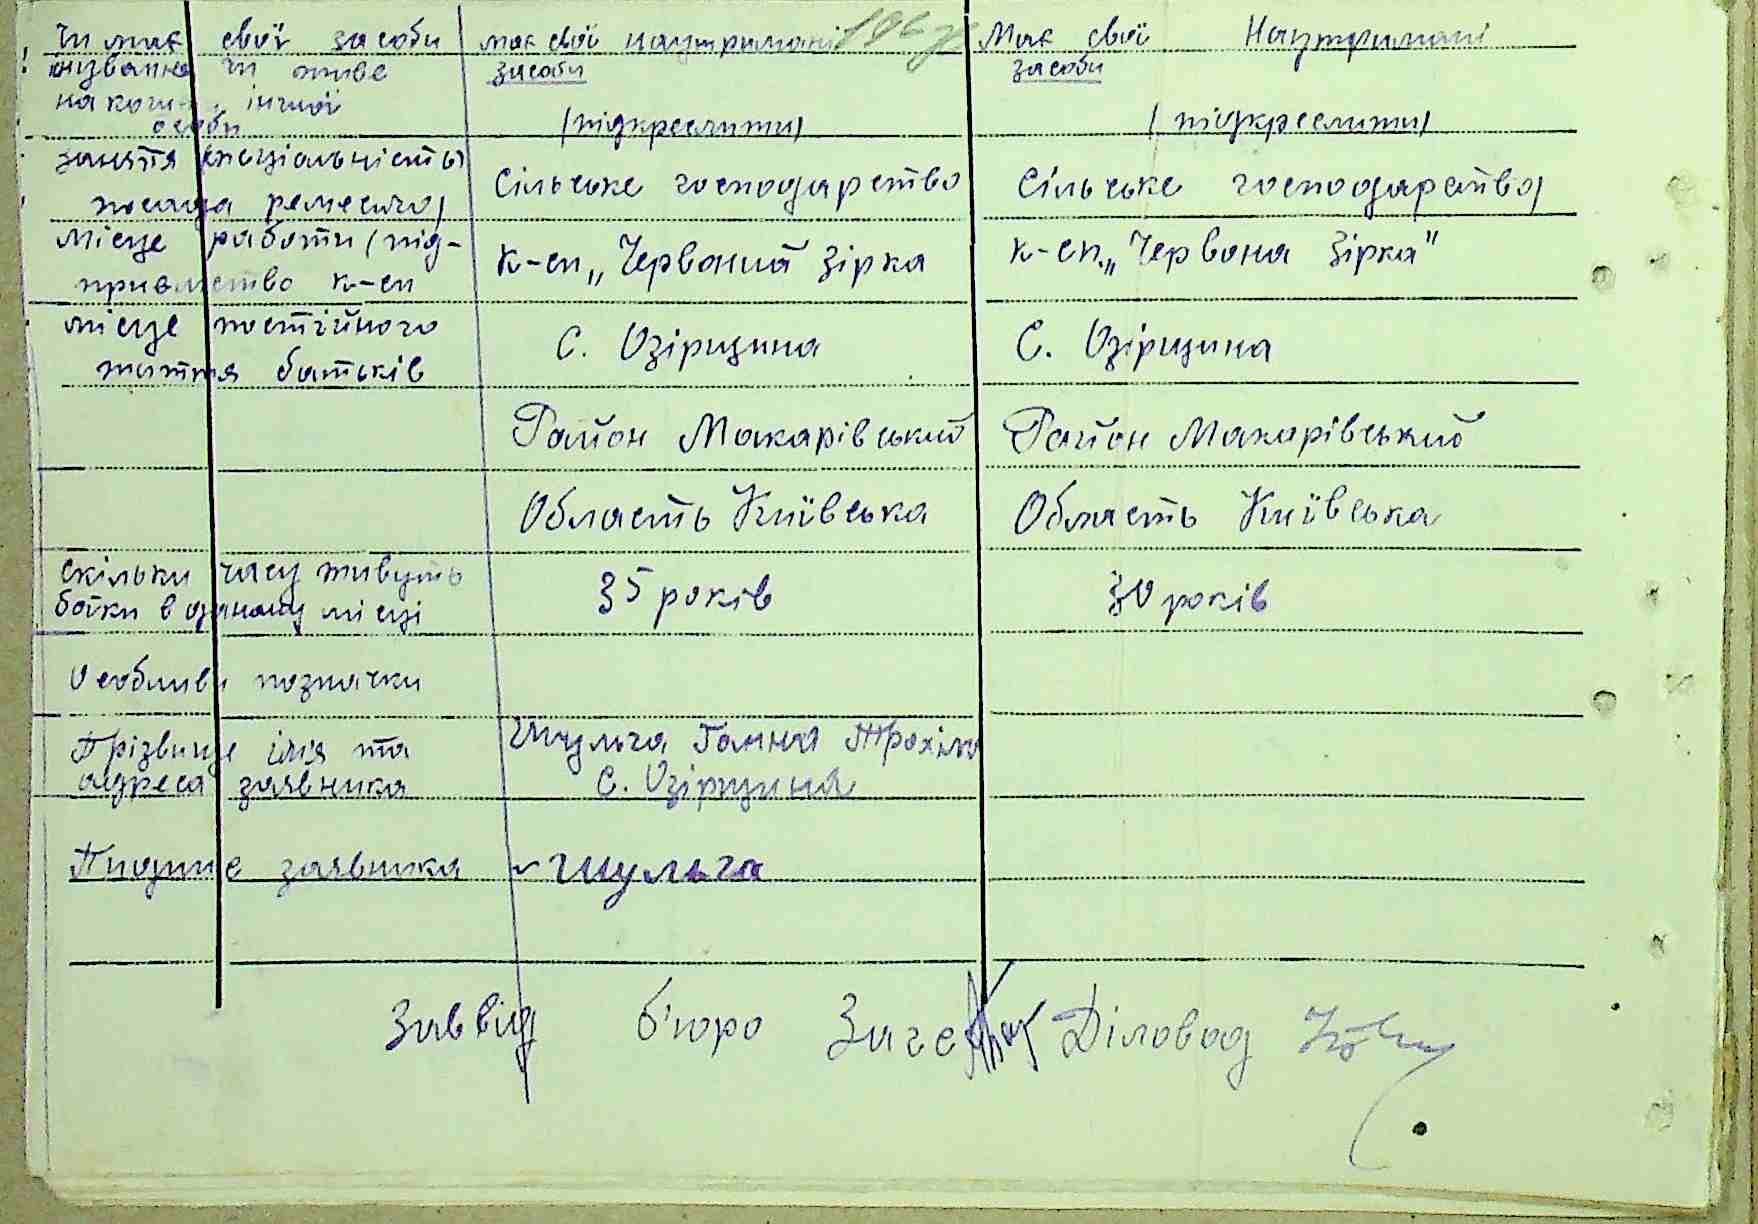 Чи має свої засоби має свої Наутримані Має свої Наутримані
чи живе засоби засоби
іншої
особи (підкреслити) (підкреслити)
заняття (спеціальність)
посада ремесло) Сільське господарство Сільське господарство
Місце работи (під-
приємство к-сп К-сп „Червоний Зірка К-сп. „Червона Зірка"
місце постійного
життя батьків С. Озірщина С. Озірщина
Район Макарівський Район Макарівський
Область Київська Область Київська
скільки часу живуть
батки в одному місці 35 років 30 років
Особливі позначки
Прізвище імія та Шульга Ганна Трохім
адреса заявника С. Озірщина
Пидпис заявника Шульга
Заввід бюро Загс Діловод